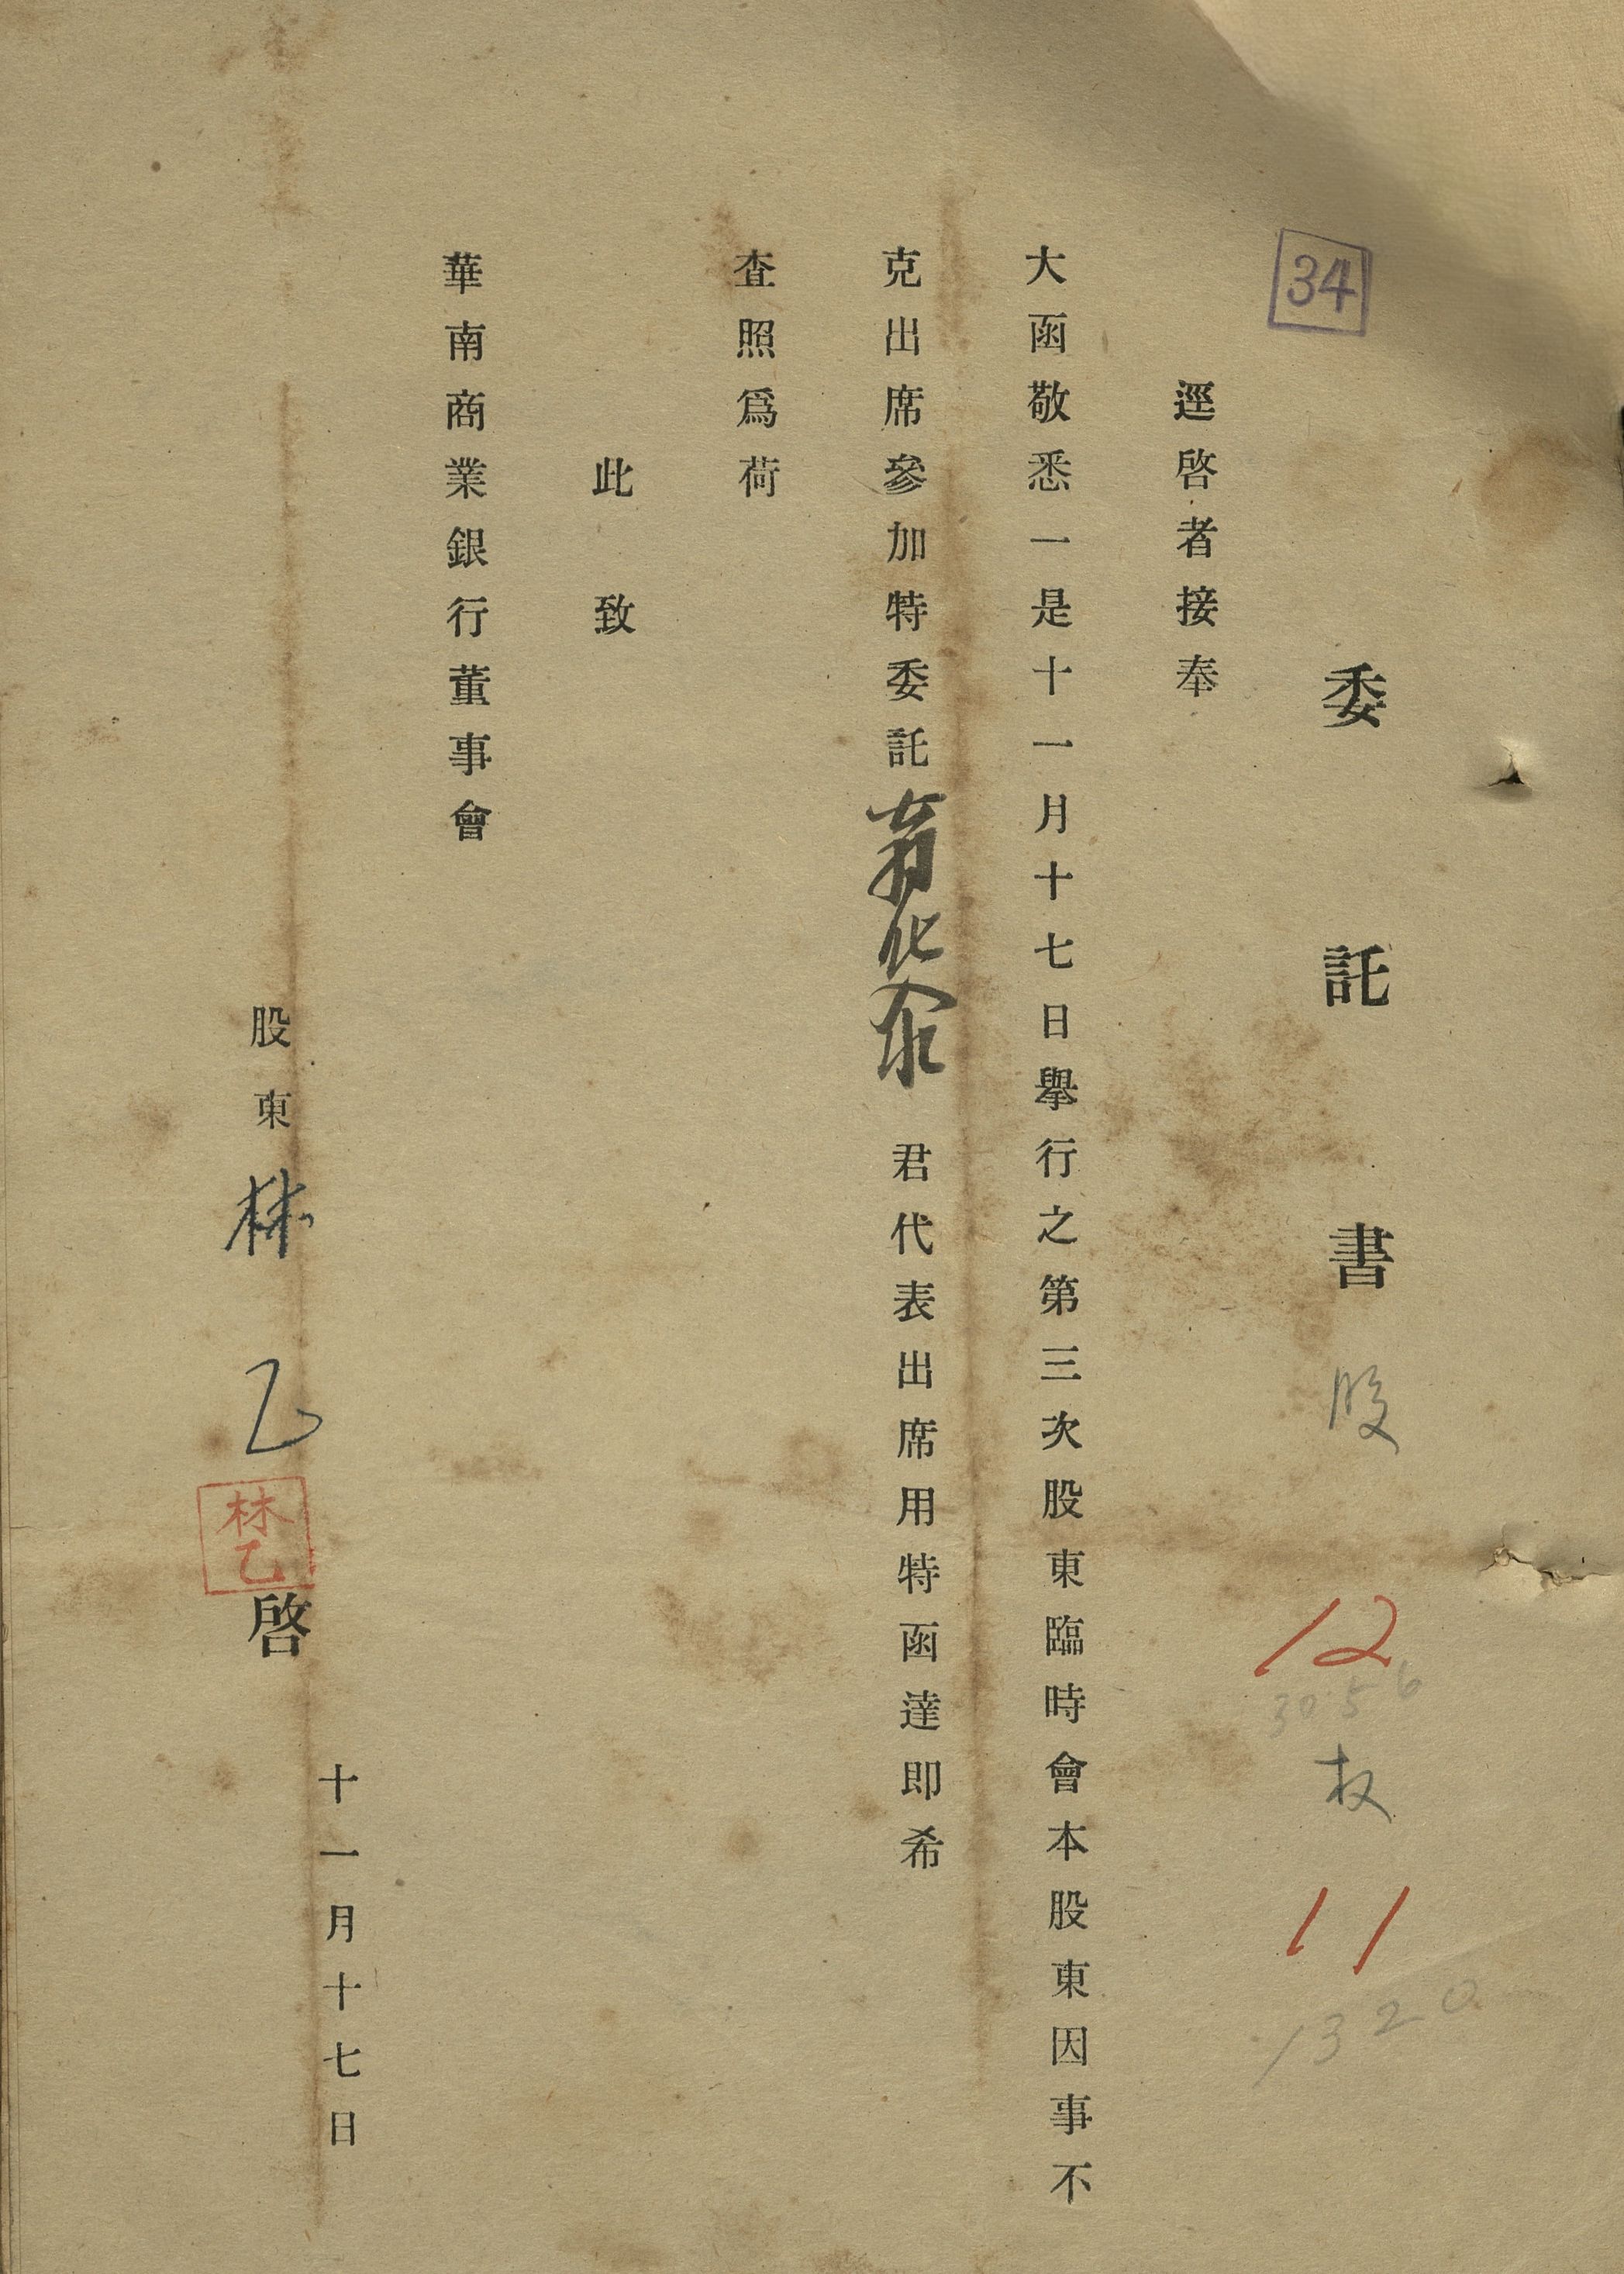 34
委託書
股 12
3056
权 11
1320
逕啓者接奉
大函敬悉一是十一月十七日舉行之第三次股東臨時會本股東因事不
克出席參加特委託 化 君代表出席用特函達即希
查照爲荷
此致
華南商業銀行董事會
股東 林乙 啓
林乙
十一月十七日